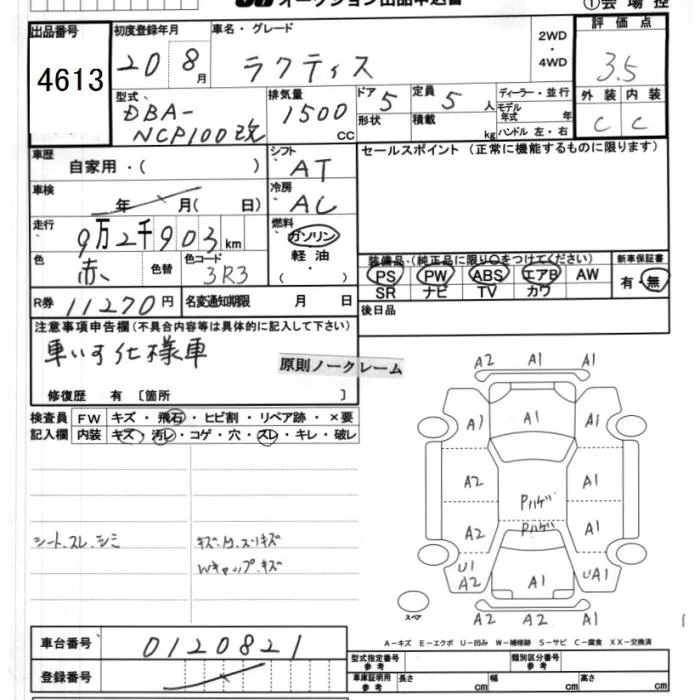 オークション出品申込書
①会場控
出品番号
4613
初度登録年月
20 8月
車名・グレード
ラクティス
2WD
・
4WD
評価点
3.5
外装 内装
C C
型式
DBA-
NCP100改
排気量
1500
CC
ドア 5
形状
定員 5 人
積載 kg
ディーラー・並行
モデル
年式 年
ハンドル 左・右
車歴
自家用・( )
シフト
AT
セールスポイント (正常に機能するものに限ります)
車検
年 月( 日)
冷房
AC
走行
9万2千903km
燃料
ガソリン
軽油
( ・ )
色
赤
色替
色コード
3R3
装備品・(純正品に限り○をつけてください)
PS PW ABS エアB AW
SR ナビ TV カワ
新車保証書
有・無
R券 11270円
名変通知期限 月 日
後日品
注意事項申告欄(不具合内容等は具体的に記入して下さい)
車いす仕様車
原則ノークレーム
修復歴 有 〔箇所 〕
検査員
記入欄
FW キズ・飛石・ヒビ割・リペア跡・×要
内装 キズ・汚レ・コゲ・穴・スレ・キレ・破レ
シート.スレ.シミ
キズ.M.スリキズ
Wキャップ.キズ
A2 A1 A1
A1 A1 A1
A2 Pハゲ A1
A2 Pハゲ A1
U1
A2 A1 UA1
A2 A2 A1
スペア
A-キズ E-エクボ U-凹み W-補修跡 S-サビ C-腐食 XX-交換済
車台番号 0120821
登録番号
型式指定番号
参考
類別区分番号
参考
車庫証明用
参考
長さ cm 幅 cm 高さ cm